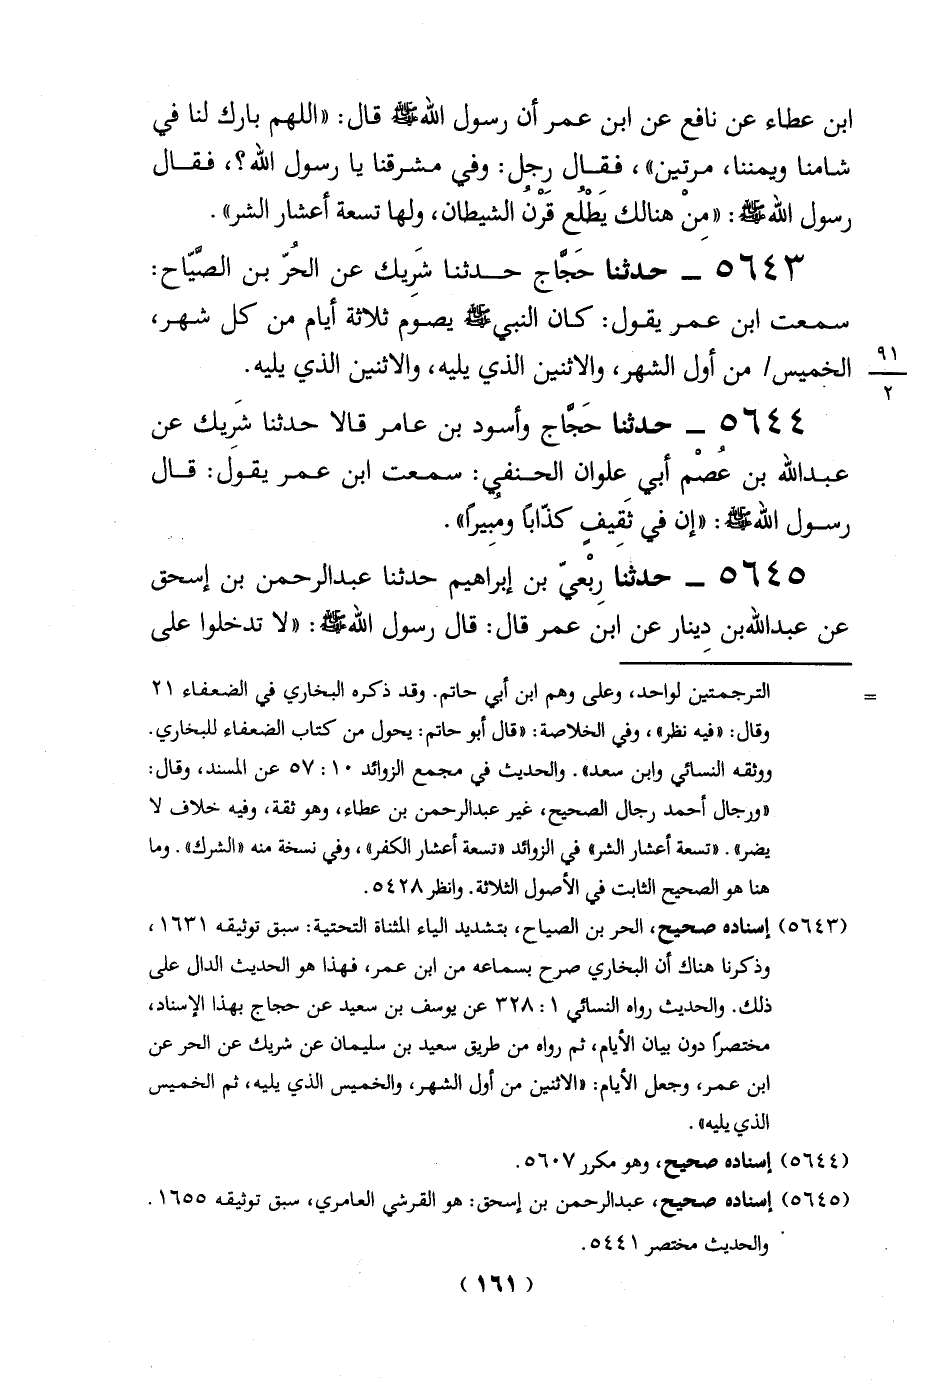 ابن عطاء عن نافع عن ابن عمر أن رسول الله ﷺ قال: «اللهم بارك لنا في
شامنا ويمننا، مرتين»، فقال رجل: وفي مشرقنا يا رسول الله؟، فقال
رسول الله ﷺ: «مِنْ هنالك يَطْلُع قَرْنُ الشيطان، ولها تسعة أعشار الشر».
٥٦٤٣ ــ حدثنا حَجَّاج حـدثنا شَريك عن الحُرّ بن الصَّيَّاح:
سمعت ابن عمر يقول: كان النبي ﷺ يصوم ثلاثة أيام من كل شهر،
الخميس/ من أول الشهر، والاثنين الذي يليه، والاثنين الذي يليه.
٩١
٢
٥٦٤٤ ــ حدثنا حَجَّاج وأسود بن عامر قالا حدثنا شَريك عن
عبدالله بن عُصْم أبي علوان الحنفي: سمعت ابن عمر يقول: قال
رسول الله ﷺ: «إن في ثَقِيفٍ كذّابًا ومُبِيرًا».
٥٦٤٥ ــ حدثنا رِبْعيّ بن إبراهيم حدثنا عبدالرحمن بن إسحق
عن عبدالله بن دِينار عن ابن عمر قال: قال رسول الله ﷺ: «لا تدخلوا على
= الترجمتين لواحد، وعلى وهم ابن أبي حاتم. وقد ذكره البخاري في الضعفاء ٢١
وقال: «فيه نظر»، وفي الخلاصة: «قال أبو حاتم: يحول من كتاب الضعفاء للبخاري.
ووثقه النسائي وابن سعد». والحديث في مجمع الزوائد ١٠: ٥٧ عن المسند، وقال:
«ورجال أحمد رجال الصحيح، غير عبدالرحمن بن عطاء، وهو ثقة، وفيه خلاف لا
يضر». «تسعة أعشار الشر» في الزوائد «تسعة أعشار الكفر»، وفي نسخة منه «الشرك». وما
هنا هو الصحيح الثابت في الأصول الثلاثة. وانظر ٥٤٢٨.
(٥٦٤٣) إسناده صحيح، الحر بن الصياح، بتشديد الياء المثناة التحتية: سبق توثيقه ١٦٣١،
وذكرنا هناك أن البخاري صرح بسماعه من ابن عمر، فهذا هو الحديث الدال على
ذلك. والحديث رواه النسائي ١: ٣٢٨ عن يوسف بن سعيد عن حجاج بهذا الإسناد،
مختصرًا دون بيان الأيام، ثم رواه من طريق سعيد بن سليمان عن شريك عن الحر عن
ابن عمر، وجعل الأيام: «الاثنين من أول الشهر، والخميس الذي يليه، ثم الخميس
الذي يليه».
(٥٦٤٤) إسناده صحيح، وهو مكرر ٥٦٠٧.
(٥٦٤٥) إسناده صحيح، عبدالرحمن بن إسحق: هو القرشي العامري، سبق توثيقه ١٦٥٥.
والحديث مختصر ٥٤٤١.
(١٦١)